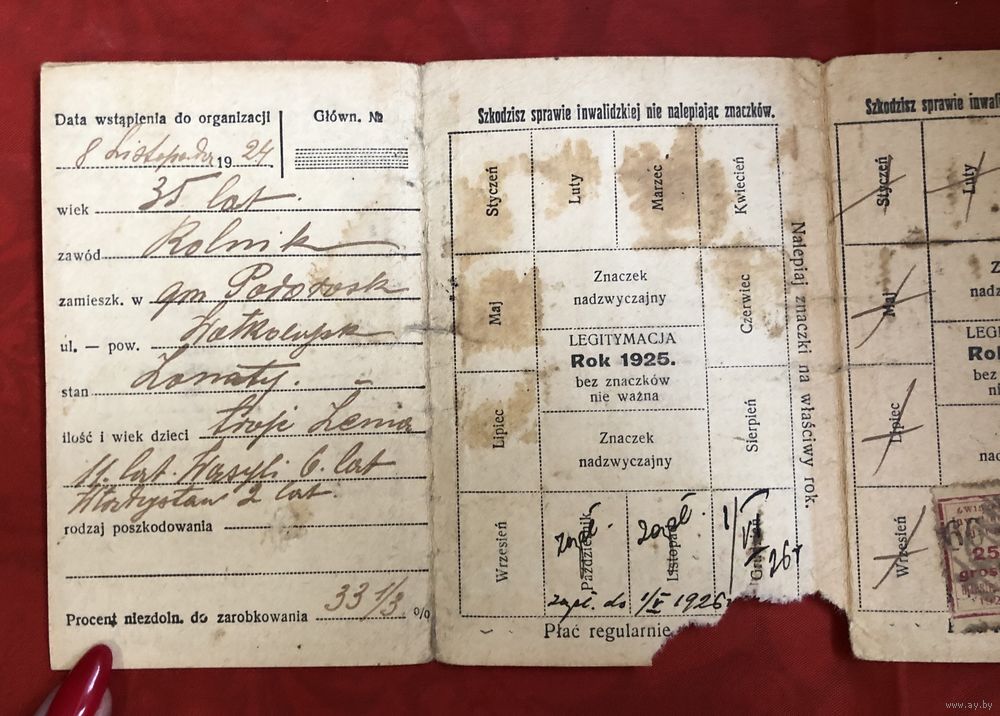 Data wstąpienia do organizacji
Główn. №
8 Listopada 1924
wiek 35 lat.
zawód Rolnik
zamieszk. w gm Podorosk
ul. — pow. Wołkowysk
stan Żonaty.
ilość i wiek dzieci troje
11. lat. Wasyli 6. lat
Władysław 2 lat.
rodzaj poszkodowania
Procent niezdoln. do zarobkowania 33 1/3 %
Szkodzisz sprawie inwalidzkiej nie nalepiając znaczków.
Styczeń
Luty
Marzec
Kwiecień
Maj
Znaczek
nadzwyczajny
Czerwiec
LEGITYMACJA
Rok 1925.
bez znaczków
nie ważna
Lipiec
Znaczek
nadzwyczajny
Sierpień
Wrzesień
Październik
Listopad
zapł. do 1/V 1926 r
1/V 26 r
Nalepiaj znaczki na właściwy rok.
Płać regularnie
Szkodzisz sprawie inwali
Styczeń
Luty
Maj
Z
nadz
LEGI
Rok
bez
ni
Lipiec
nad
Wrzesień
25
grosz
www.ay.by